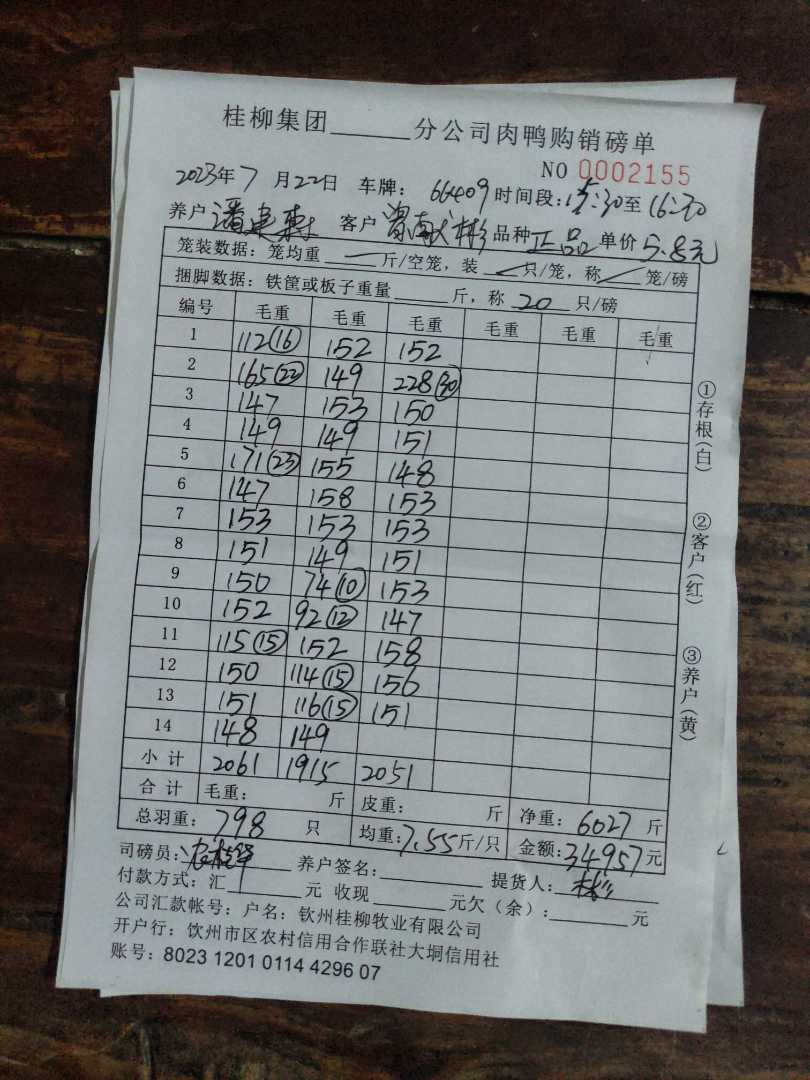 桂柳集团______分公司肉鸭购销磅单
NO 0002155
2023年7月22日 车牌: 66409 时间段: 15:30至16:30
养户 潘 客户 曾献彬 品种 正品 单价 5.8元
笼装数据: 笼均重 — 斤/空笼, 装 / 只/笼, 称 / 笼/磅
捆脚数据: 铁筐或板子重量______斤, 称 20 只/磅
编号 毛重 毛重 毛重 毛重 毛重 毛重
1 112(16) 152 152
2 165(22) 149 228(30)
3 147 153 150
4 149 149 151
5 171(23) 155 148
6 147 158 153
7 153 153 153
8 151 149 151
9 150 74(10) 153
10 152 92(12) 147
11 115(15) 152 158
12 150 114(15) 156
13 151 116(15) 151
14 148 149
小计 2061 1915 2051
合计 毛重: 斤 皮重: 斤 净重: 6027斤
总羽重: 798 只 均重: 7.55斤/只 金额: 34957元
司磅员: 养户签名:______ 提货人: 彬
付款方式: 汇______元 收现______元欠(余):______元
公司汇款帐号: 户名: 钦州桂柳牧业有限公司
开户行: 钦州市区农村信用合作联社大垌信用社
账号: 8023 1201 0114 4296 07
①存根(白)
②客户(红)
③养户(黄)